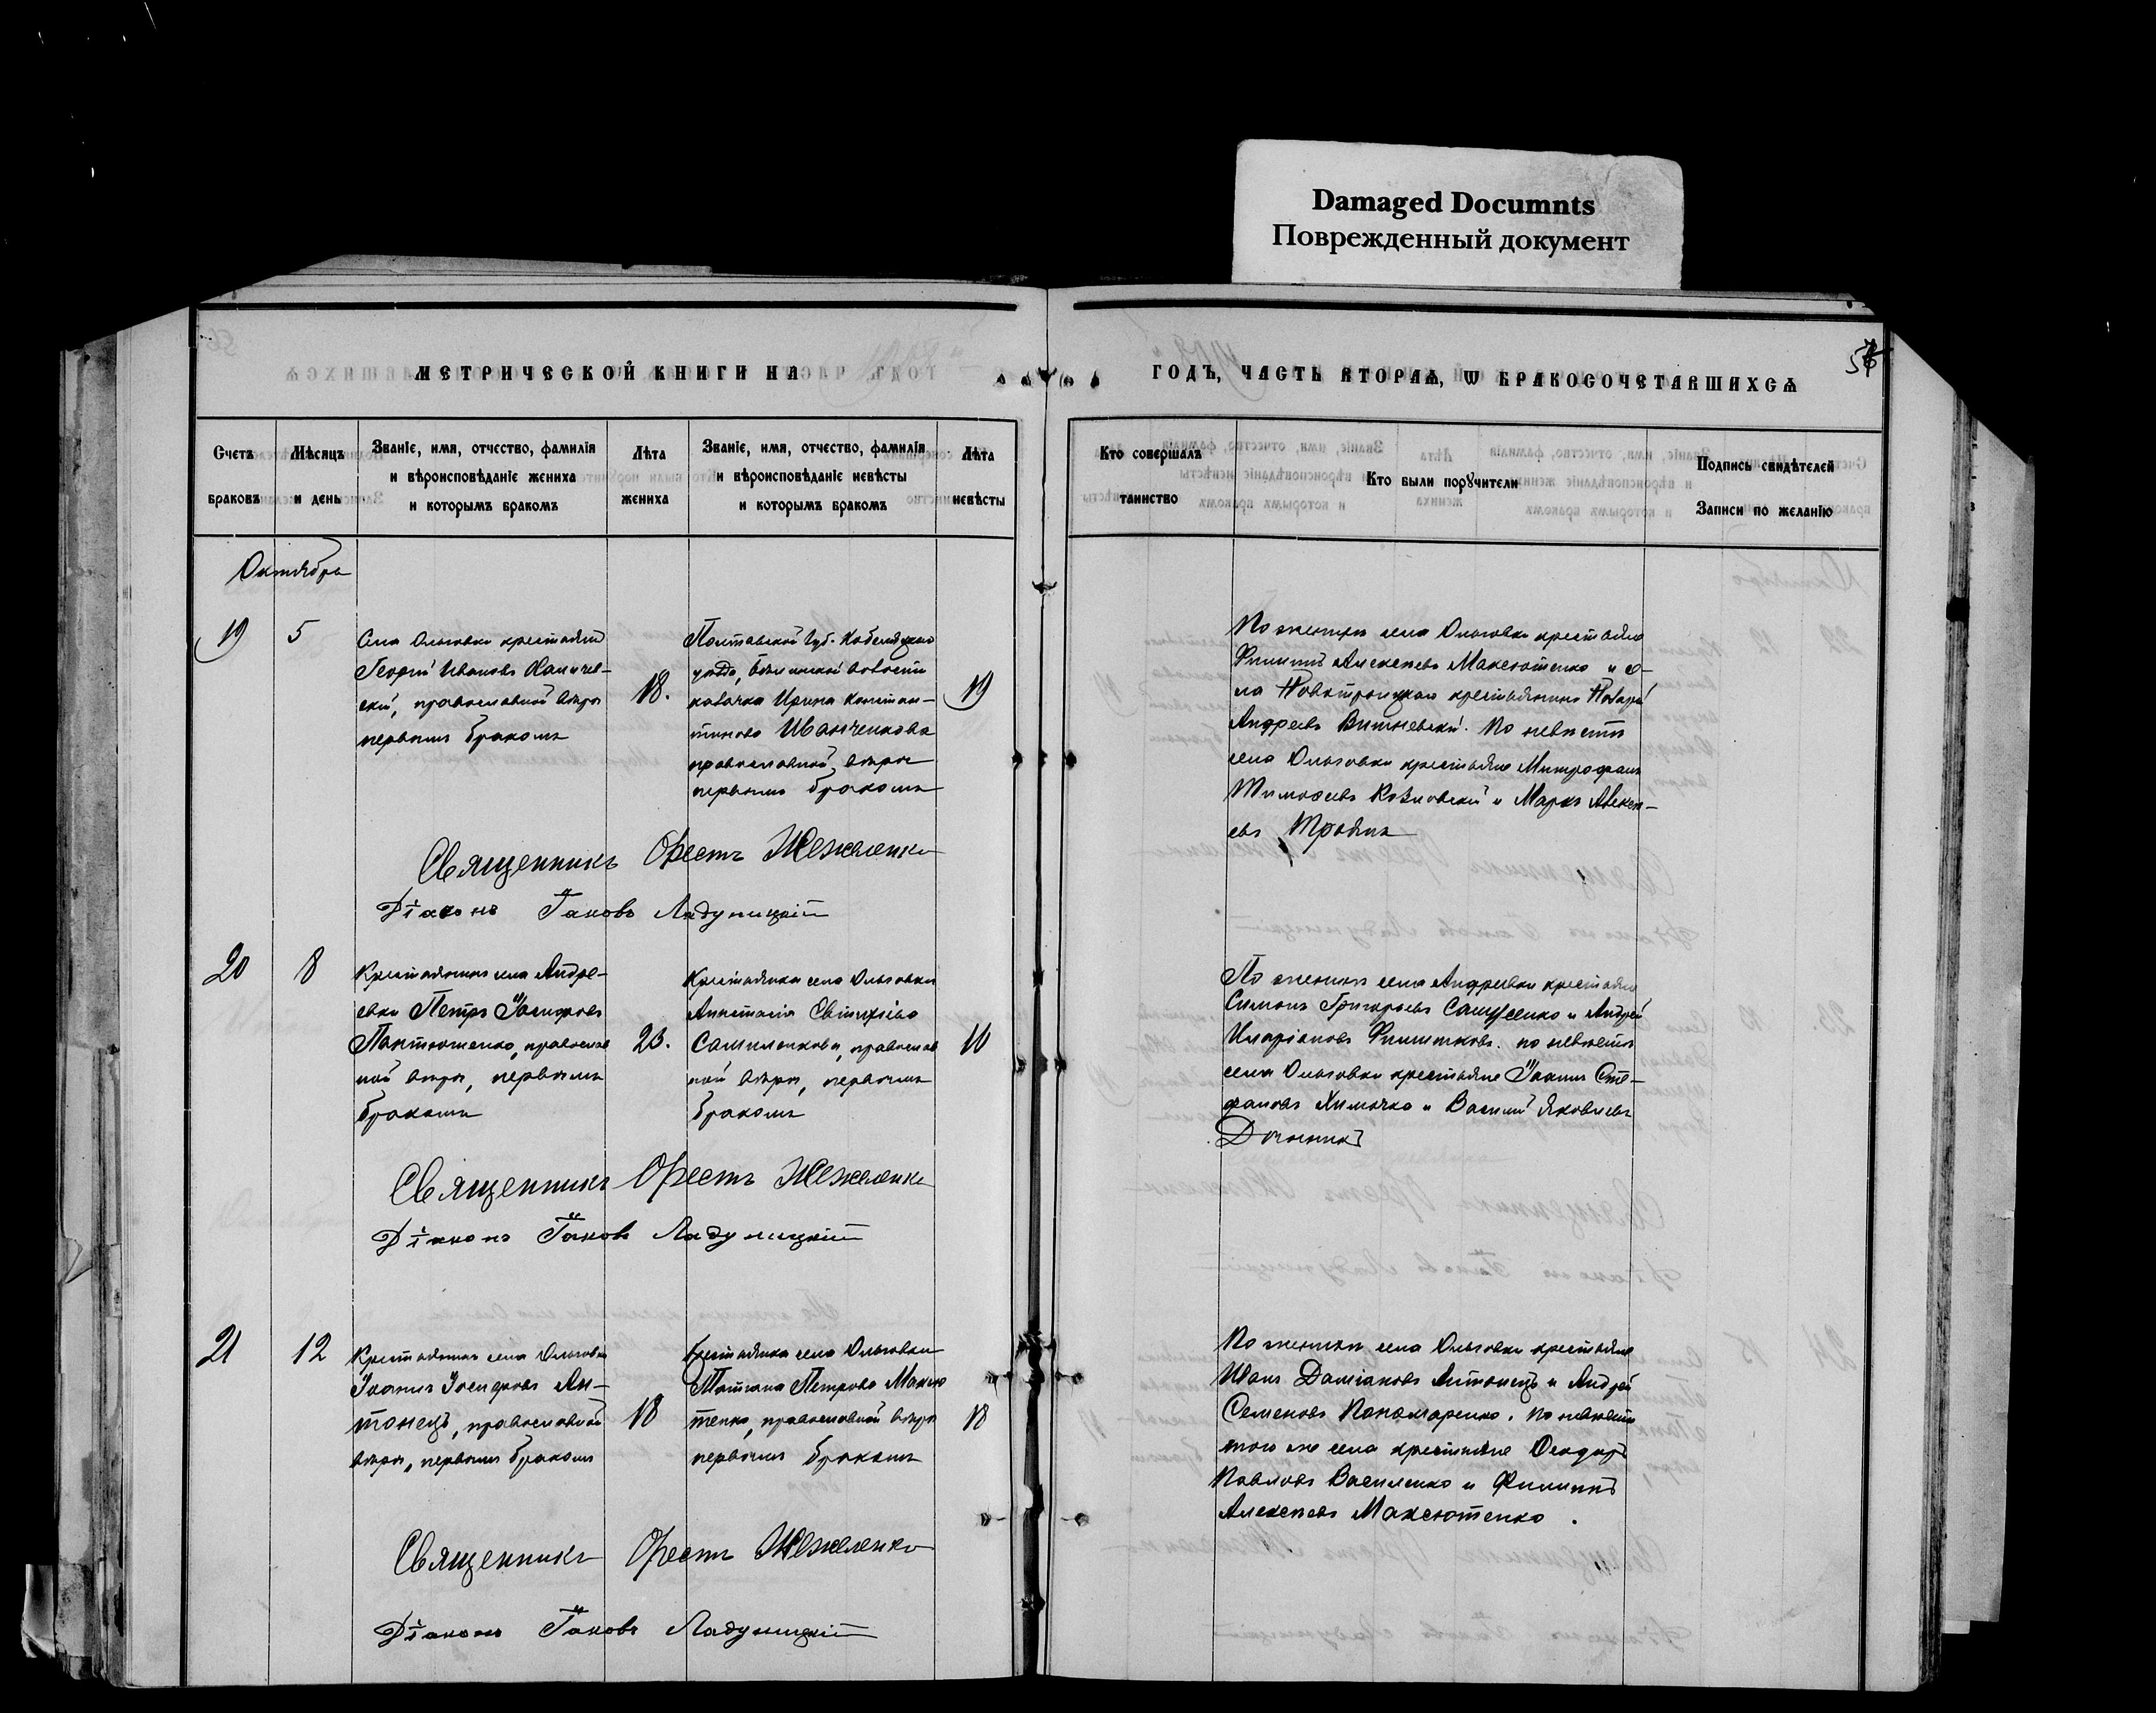 Damaged Documnts
Поврежденный документ
МЕТРИЧЕСКОЙ КНИГИ НА
ГОДЪ, ЧАСТЬ ВТОРАѦ, Ѡ БРАКОСОЧЕТАВШИХСѦ
Счетъ браковъ
Мѣсяцъ и день
Званіе, имя, отчество, фамилія
и вѣроисповѣданіе жениха
и которымъ бракомъ
Лѣта жениха
Званіе, имя, отчество, фамилія
и вѣроисповѣданіе невѣсты
и которымъ бракомъ
Лѣта невѣсты
Кто совершалъ таинство
Кто были порꙋчители
Подпись свидѣтелей
Записи по желанію
Октябрь
19
5
Села Ольговки крестьянинъ
Георгій Ивановъ
скій, православной вѣры
первымъ бракомъ
18.
Полтавской губ. Кобелякскаго
уѣзда, волости
козачка Ирина Констан-
тинова Иванченкова
православной вѣры
первымъ бракомъ
19
По женихѣ села Ольговки крестьяне
Филиппъ Алексѣевъ Максютенко и се-
ла Новотроицкаго крестьянинъ
Андреевъ Вишневскій. По невѣстѣ
села Ольговки крестьяне Митрофанъ
Тимофеевъ Козловскій и Маркъ Алексѣ-
евъ Троянъ
Священникъ Орестъ Жежеленко
Діаконъ Іаковъ Ладуницкій
20
8
Крестьянинъ села Андре-
евки Петръ Іосифовъ
Пантюшенко, православ
ной вѣры, первымъ
бракомъ
23.
Крестьянка села Ольговки
Анастасія
Самиленкова, православ
ной вѣры, первымъ
бракомъ
По женихѣ села Андреевки крестьяне
Симонъ Григорьевъ и Андрей
Иларіоновъ Филипповъ. по невѣстѣ
села Ольговки крестьяне Іоаннъ Сте-
фановъ Химочка и Василій Яковлевъ
Священникъ Орестъ Жежеленко
Діаконъ Іаковъ Ладуницкій
21
12
Крестьянинъ села Ольговки
Іоаннъ Іосифовъ Ан-
тонецъ, православной
вѣры, первымъ бракомъ
18
Крестьянка села Ольговки
Татіана Петрова Максю
тенко, православной вѣры
первымъ бракомъ
18
По женихѣ села Ольговки крестьяне
Иванъ Даміановъ Антонецъ и Андрей
Семеновъ Пономаренко. по невѣстѣ
того же села крестьяне Феодоръ
Павловъ Василенко и Филиппъ
Алексѣевъ Максютенко.
Священникъ Орестъ Жежеленко
Діаконъ Іаковъ Ладуницкій